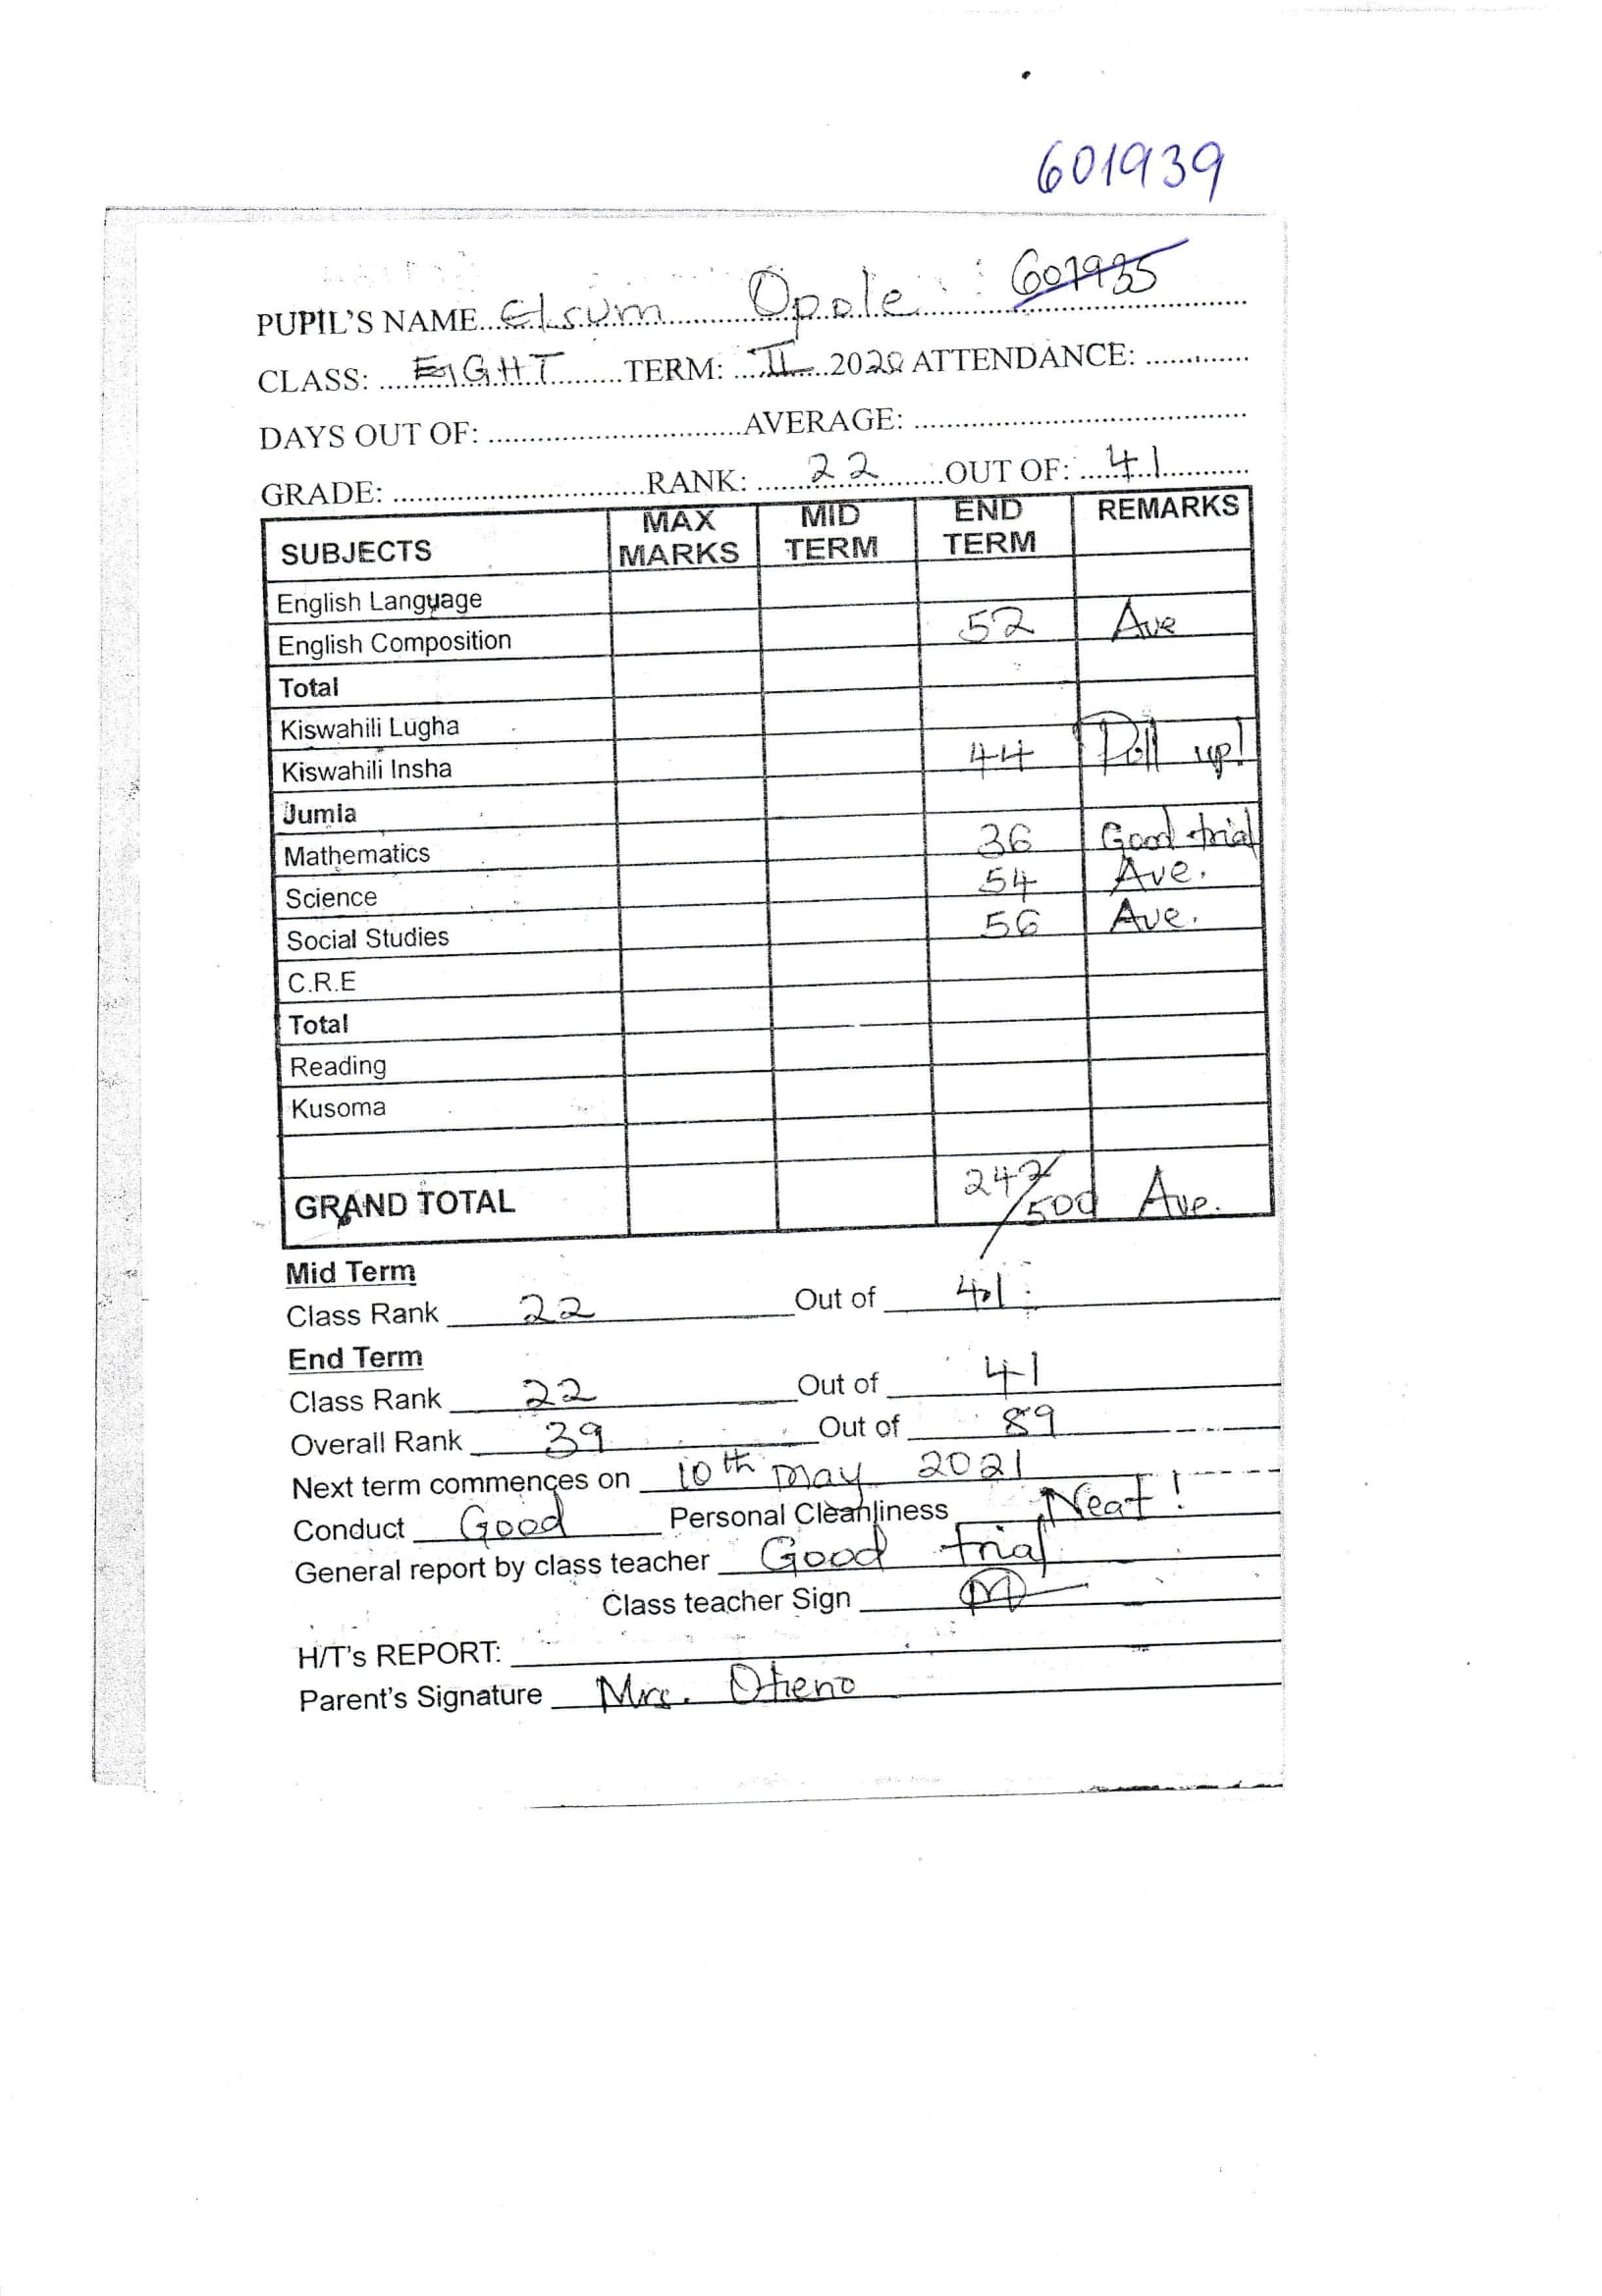 601939
601935
PUPIL'S NAME Elsum Opole
CLASS: EIGHT TERM: II 2020 ATTENDANCE:
DAYS OUT OF: AVERAGE:
GRADE: RANK: 22 OUT OF: 41
SUBJECTS MAX MARKS MID TERM END TERM REMARKS
English Language
English Composition 52 Ave
Total
Kiswahili Lugha
Kiswahili Insha 44 Pull up!
Jumla
Mathematics 36 Good trial
Science 54 Ave.
Social Studies 56 Ave.
C.R.E
Total
Reading
Kusoma
GRAND TOTAL 242/500 Ave.
Mid Term
Class Rank 22 Out of 41
End Term
Class Rank 22 Out of 41
Overall Rank 39 Out of 89
Next term commences on 10th may 2021
Conduct Good Personal Cleanliness Neat!
General report by class teacher Good trial
Class teacher Sign
H/T's REPORT:
Parent's Signature Mrs. Otieno